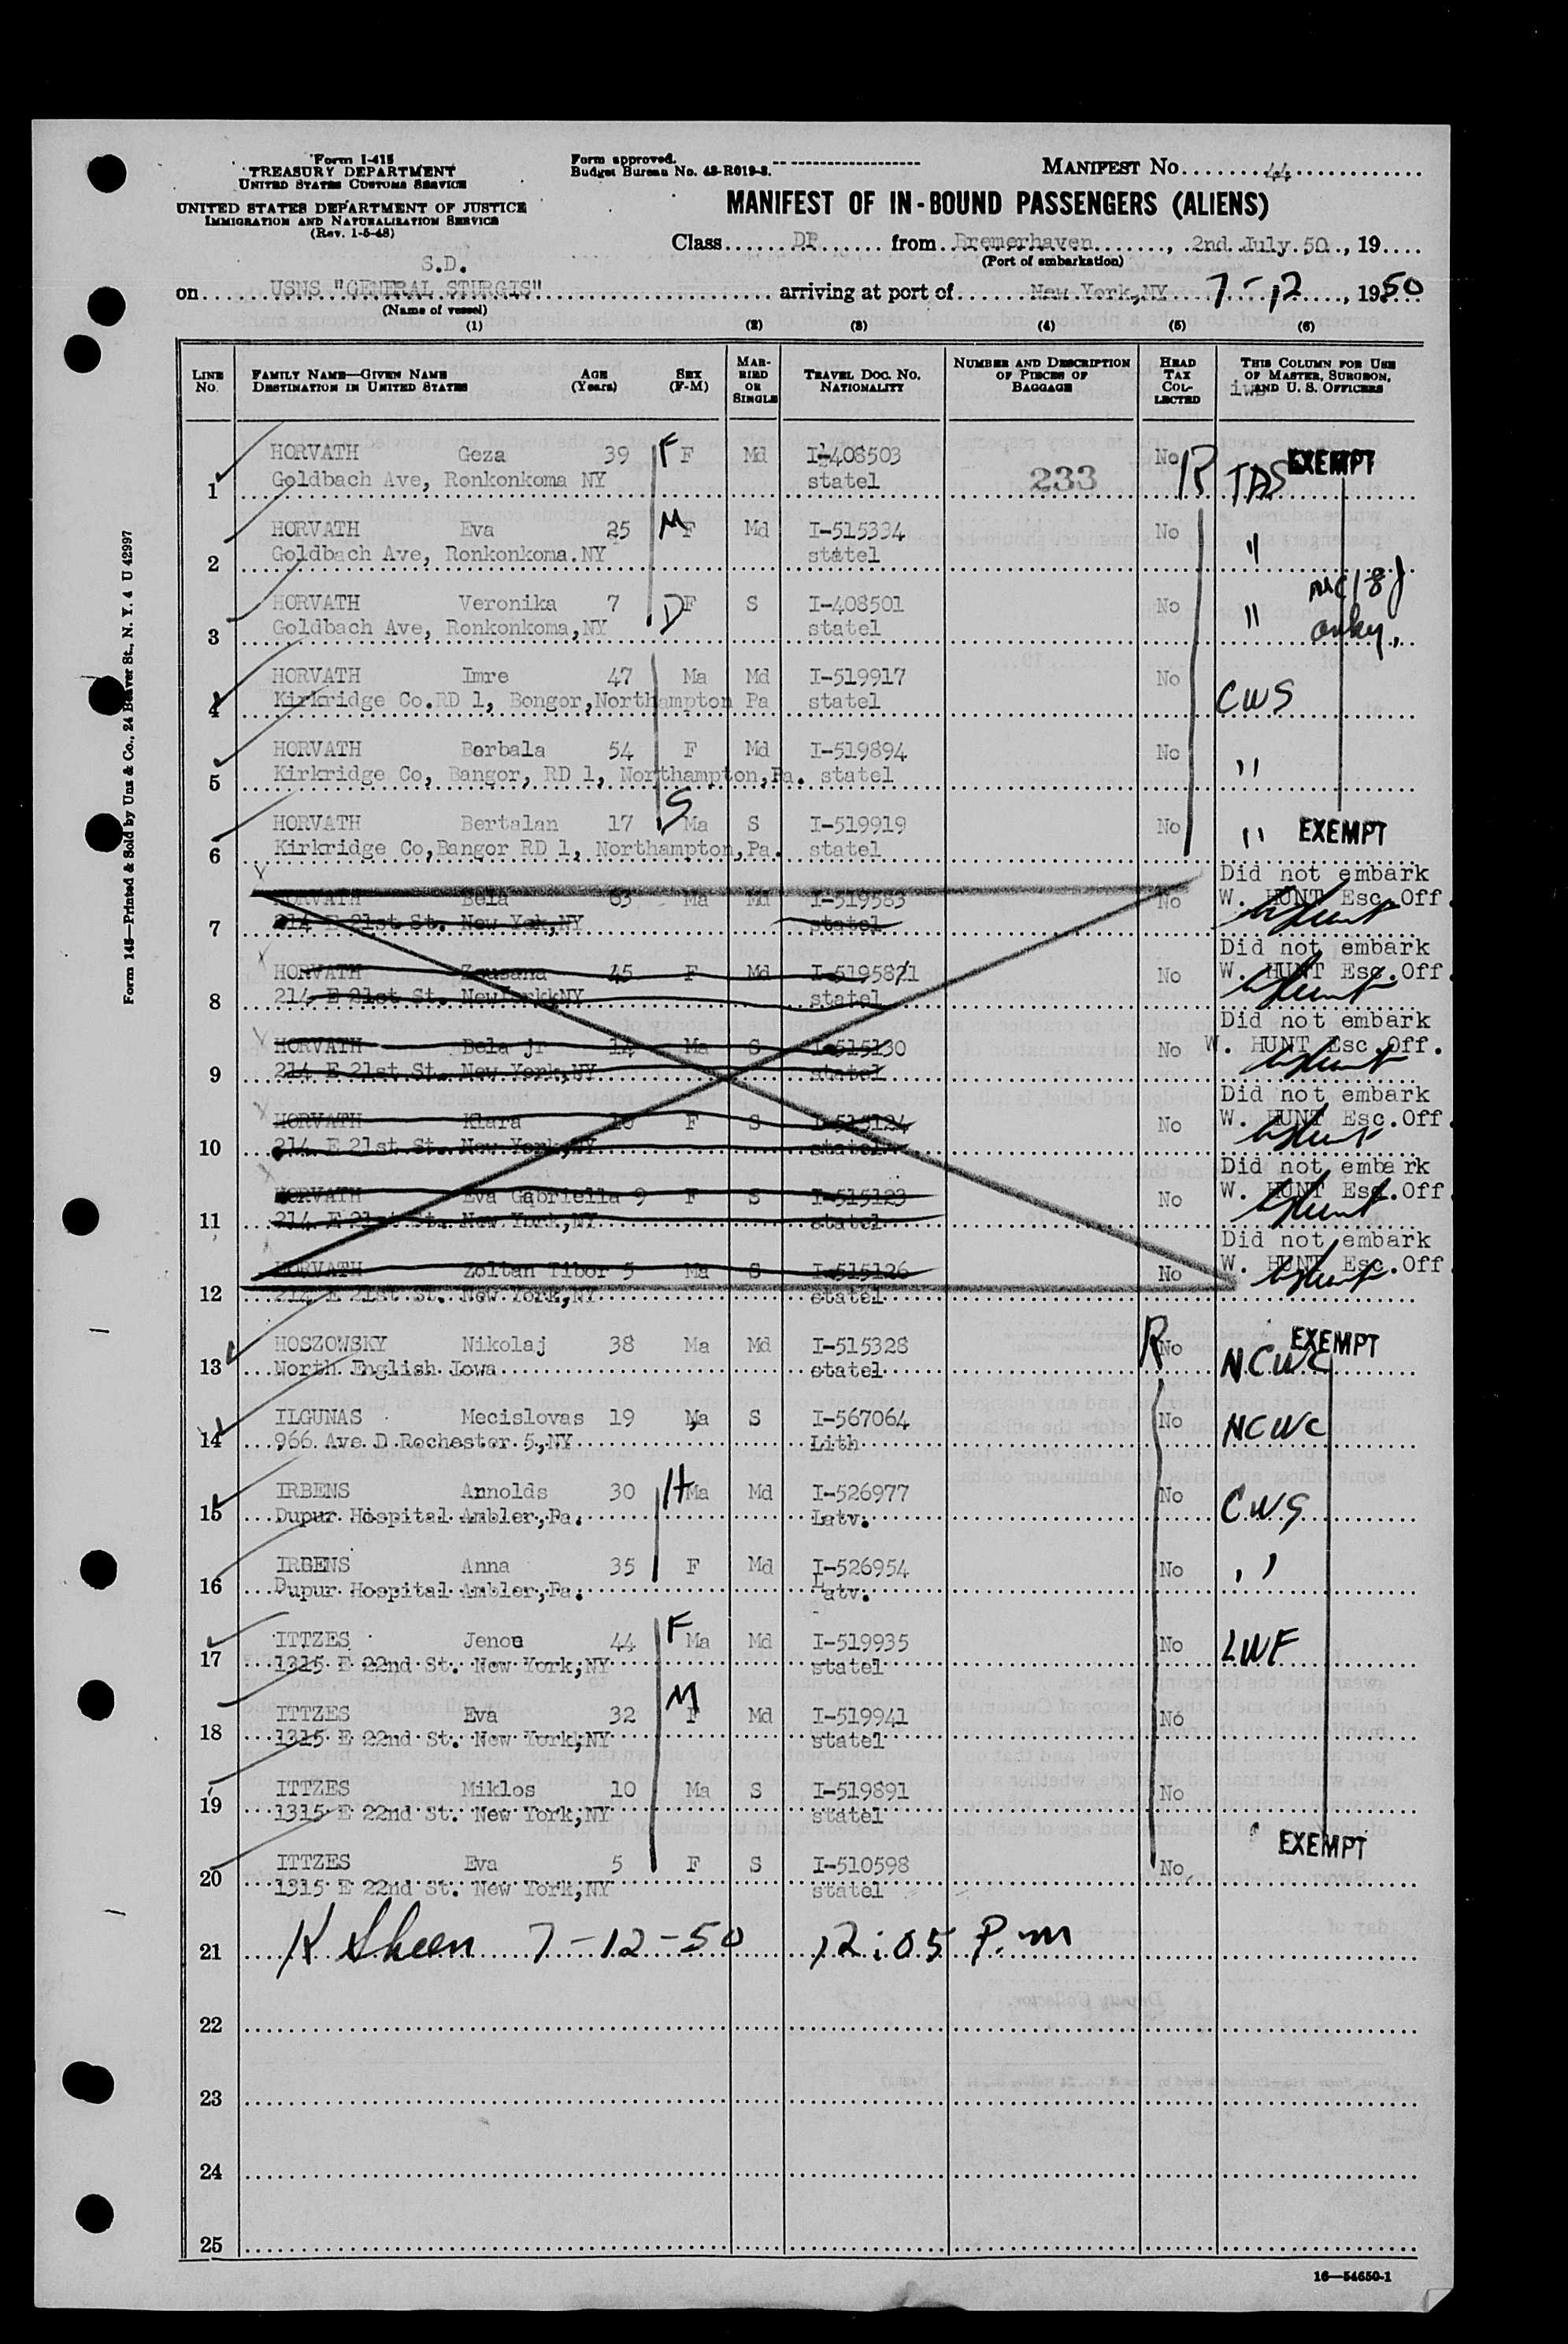 Form I-415
TREASURY DEPARTMENT
UNITED STATES CUSTOMS SERVICE
UNITED STATES DEPARTMENT OF JUSTICE
IMMIGRATION AND NATURALIZATION SERVICE
(Rev. 1-5-48)
Form approved.
Budget Bureau No. 43-R019-3.
MANIFEST No. 44
MANIFEST OF IN-BOUND PASSENGERS (ALIENS)
Class DP from Bremerhaven, 2nd July 50, 19
(Port of embarkation)
S.D.
on USNS "GENERAL STURGIS" arriving at port of New York,NY 7-12, 1950
(Name of vessel)
(1) (2) (3) (4) (5) (6)
LINE No. FAMILY NAME—GIVEN NAME DESTINATION IN UNITED STATES AGE (Years) SEX (F-M) MARRIED OR SINGLE TRAVEL DOC. NO. NATIONALITY NUMBER AND DESCRIPTION OF PIECES OF BAGGAGE HEAD TAX COLLECTED THIS COLUMN FOR USE OF MASTER, SURGEON, AND U. S. OFFICERS
HORVATH Geza 39 F F Md I-408503 233 No R EXEMPT
1 Goldbach Ave, Ronkonkoma NY statel
HORVATH Eva 25 M F Md I-515334 No "
2 Goldbach Ave, Ronkonkoma.NY statel
HORVATH Veronika 7 D F S I-408501 No "
3 Goldbach Ave, Ronkonkoma,NY statel
HORVATH Imre 47 Ma Md I-519917 No CWS
4 Kirkridge Co.RD 1, Bongor,Northampton Pa statel
HORVATH Borbala 54 F Md I-519894 No "
5 Kirkridge Co, Bangor, RD 1, Northampton,Pa. statel
HORVATH Bertalan 17 S Ma S I-519919 No " EXEMPT
6 Kirkridge Co,Bangor RD 1, Northampton,Pa. statel
Did not embark
HORVATH Bela 63 Ma Md I-519583 No W. HUNT Esc.Off
7 214 E 21st St. New Yok,NY statel
Did not embark
HORVATH Zsusana 45 F Md No W. HUNT Esc.Off
8 214 E 21st St. NewYorkkNY statel
Did not embark
HORVATH Bela jr 14 Ma S I-515130 No W. HUNT Esc.Off.
9 214 E 21st St. New York,NY statel
Did not embark
HORVATH Klara F S I-515124 No W. HUNT Esc.Off
10 214 E 21st St. New York,NY statel
Did not embark
HORVATH Eva Gabriella 9 F S I-515123 No W. HUNT Esc.Off
11 214 E 21st St. New York,NY statel
Did not embark
HORVATH Zoltan Tibor 5 Ma S I-515126 No W. HUNT Esc.Off
12 214 E 21st St. New York,NY statel
HOSZOWSKY Nikolaj 38 Ma Md I-515328 R No NCWC EXEMPT
13 North English Iowa statel
ILGUNAS Mecislovas 19 Ma S I-567064 No NCWC
14 966 Ave D Rochester 5,NY Lith
IRBENS Arnolds 30 H Ma Md I-526977 No CWS
15 Dupur Hospital Ambler,Pa. Latv.
IRBENS Anna 35 F Md I-526954 No "
16 Dupur Hospital Ambler,Pa. Latv.
ITTZES Jenoe 44 F Ma Md I-519935 No LWF
17 1315 E 22nd St. New York,NY statel
ITTZES Eva 32 M F Md I-519941 No
18 1315 E 22nd St. New York,NY statel
ITTZES Miklos 10 Ma S I-519891 No
19 1315 E 22nd St. New York,NY statel
ITTZES Eva 5 F S I-510598 No EXEMPT
20 1315 E 22nd St. New York,NY statel
21 K Skeen 7-12-50 12:05 P.m
22
23
24
25
16—54650-1
Form 145—Printed & Sold by Unz & Co., 24 Beaver St., N. Y. 4 U 42997